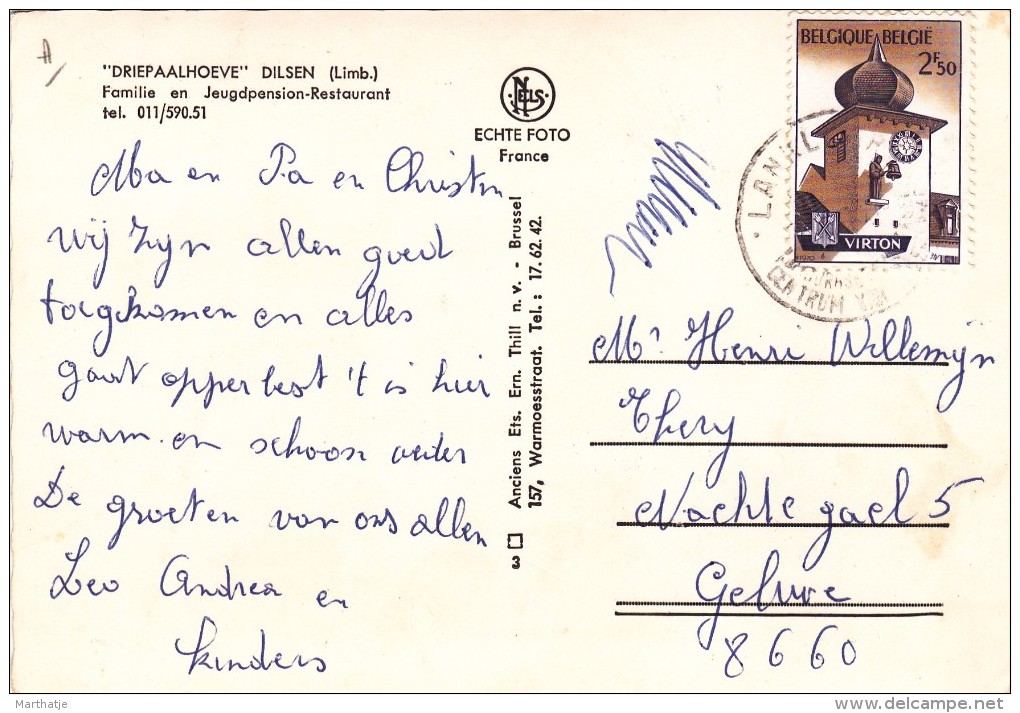 "DRIEPAALHOEVE" DILSEN (Limb.)
Familie en Jeugdpension-Restaurant
tel. 011/590.51
NELS
ECHTE FOTO
France
Ma en Pa en Christin
wij zijn allen goed
toegekomen en alles
gaat opperbest 't is hier
warm en schoon weder
De groeten van ons allen
Leo Andrea en
kinders
Anciens Ets. Ern. Thill n. v. - Brussel
157, Warmoesstraat. Tel.: 17.62.42.
3
BELGIQUE BELGIË
2F50
VIRTON
1970
6
LANKL
CENTRUM
Mr Henri Willemijn
Thery
Nachtegael 5
Geluwe
8660
Marthatje
delcampe.net